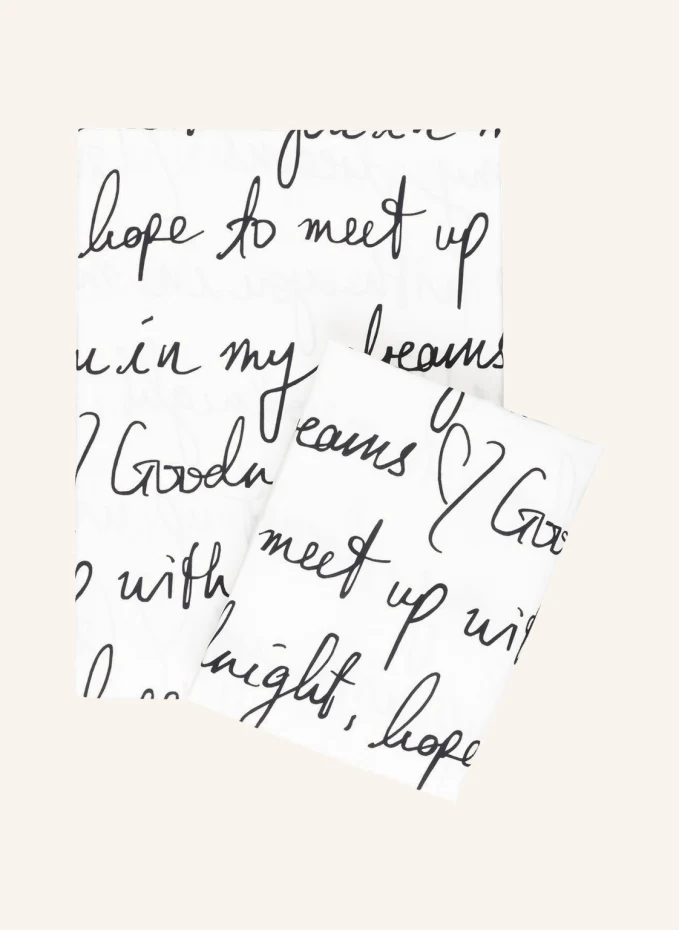 you in m
hope to meet up
u in my dreams
Goodn
with
eams ♡ Goo
meet up wi
night, hope